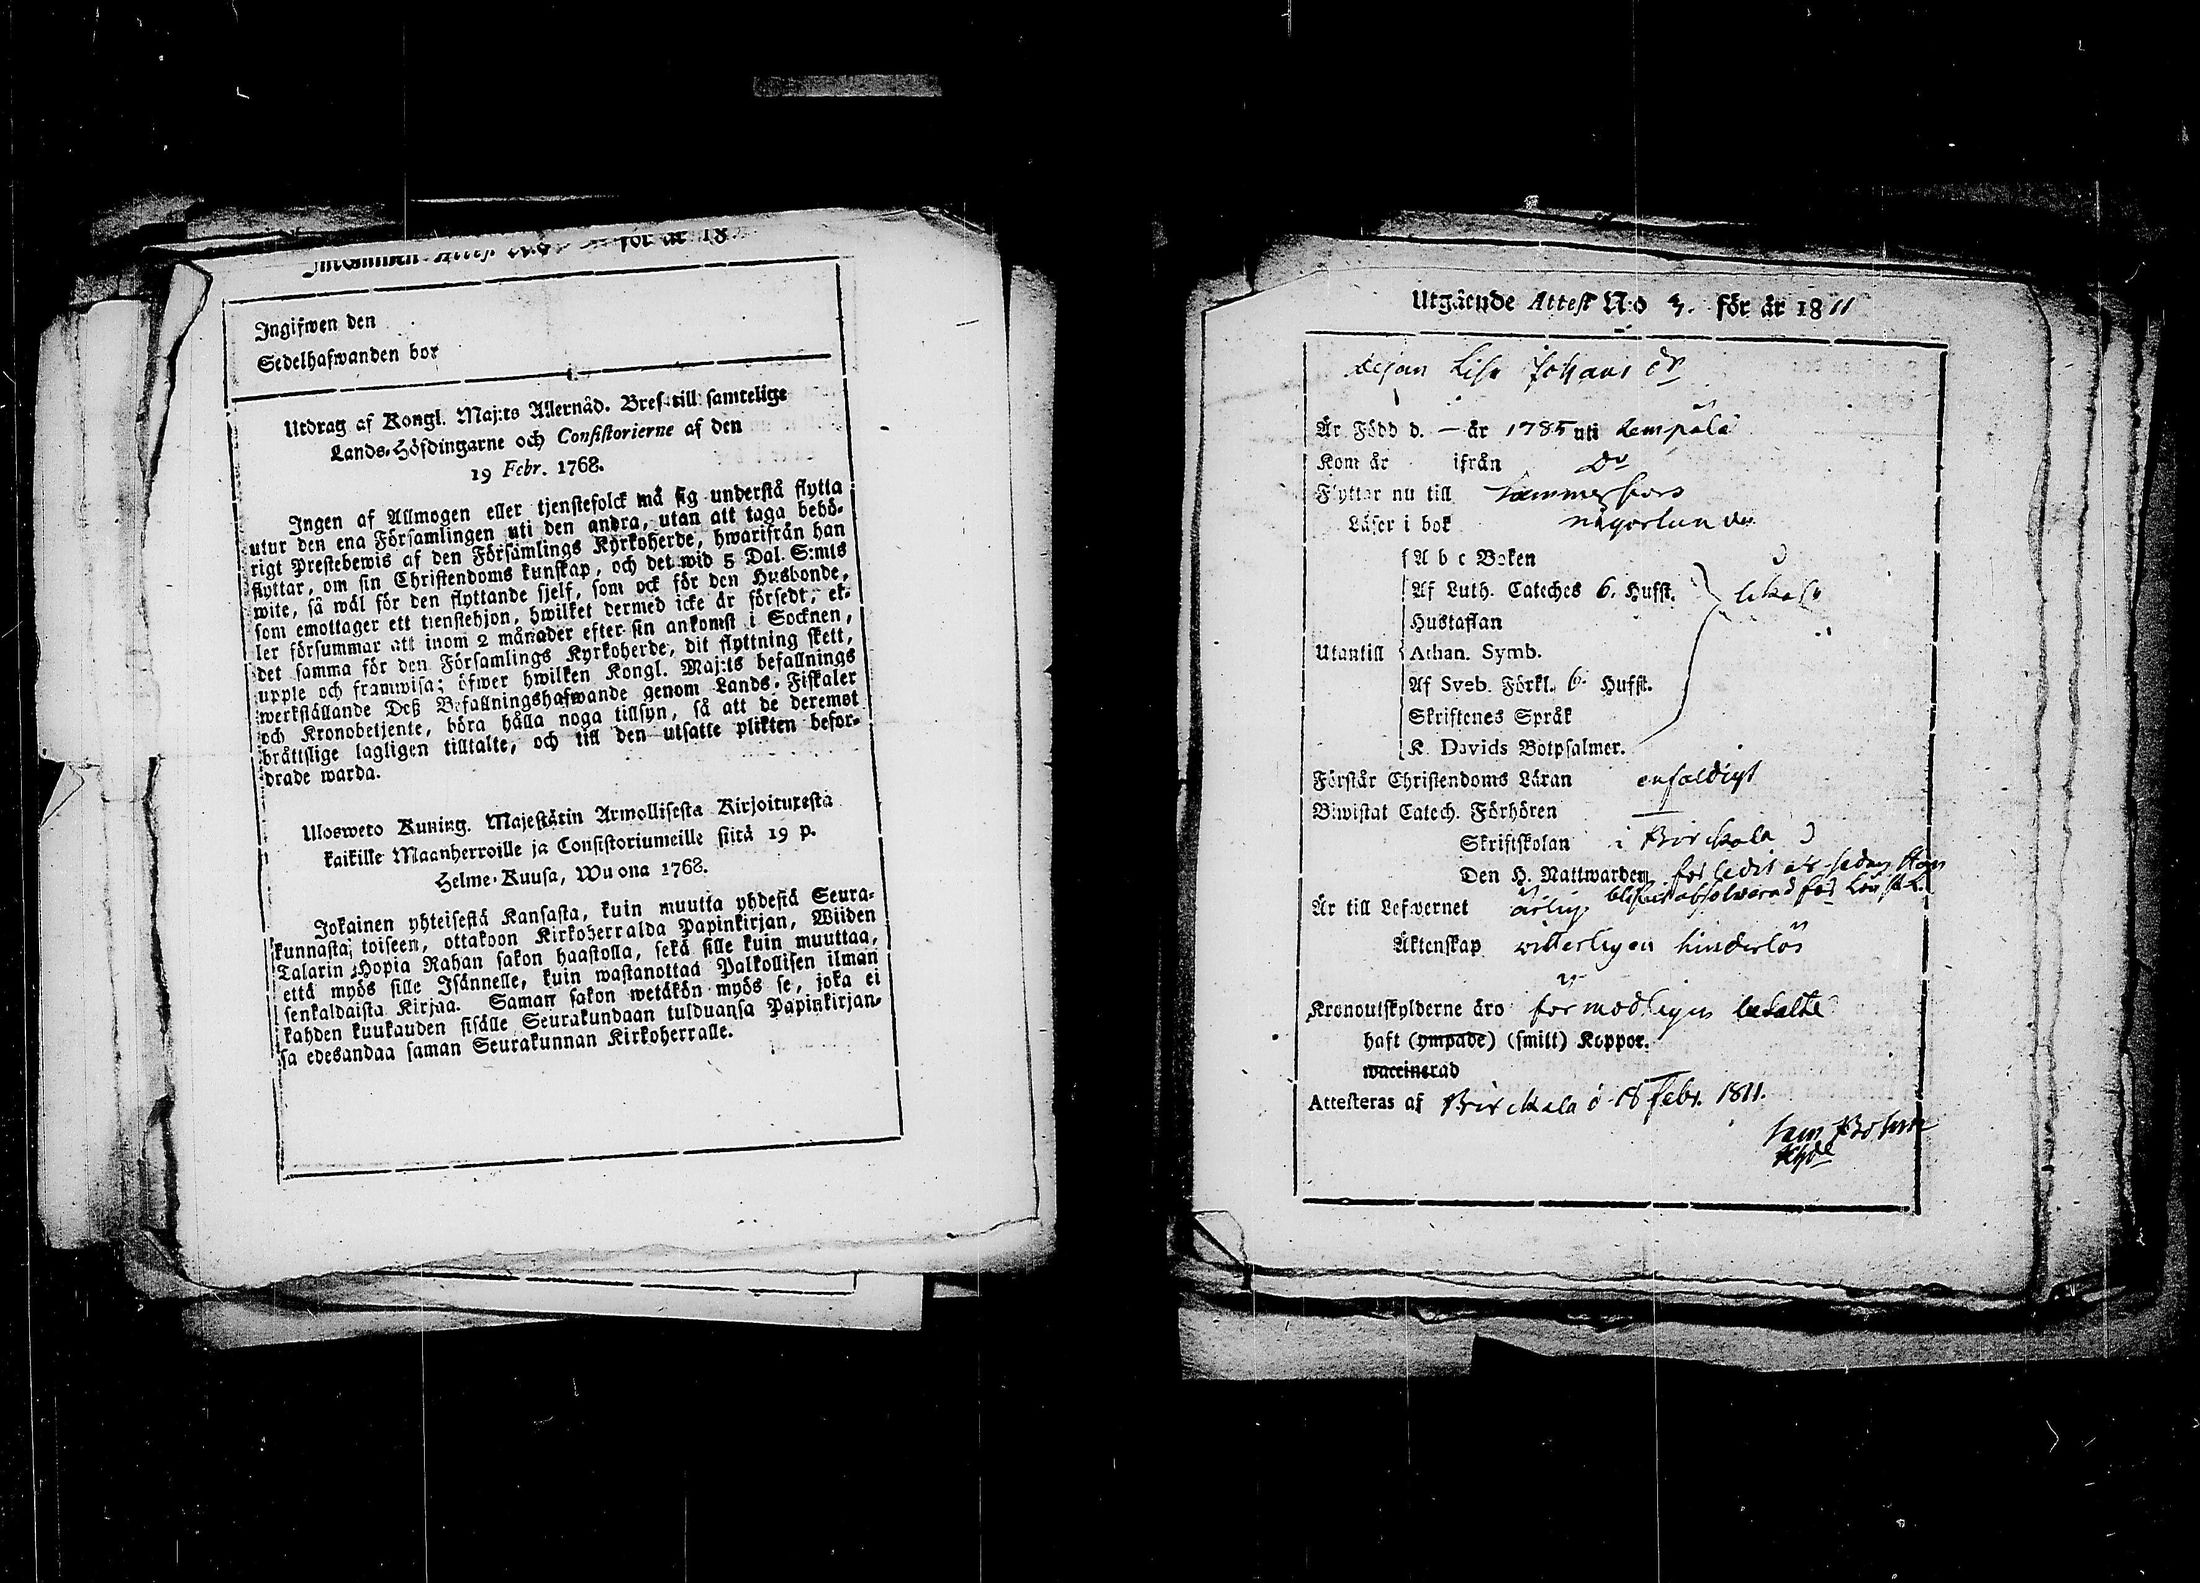 Inkommen Attest N:o för år 18
Ingifwen den
Sedelhafwanden bor
Utdrag af Kongl. Maj:ts Allernåd. Bref till samtelige
Lands-Höfdingarne och Consistorierne af den
19 Febr. 1768.
Ingen af Allmogen eller tjenstefolck må sig understå flytta
utur den ena Församlingen uti den andra, utan att taga behö-
rigt Prestebewis af den Församlings Kyrkoherde, hwarifrån han
flyttar, om sin Christendoms kunskap, och det wid 5 Dal. S:mts
wite, så wäl för den flyttande sjelf, som ock för den Husbonde,
som emottager ett tienstehjon, hwilket dermed icke är försedt; el-
ler försummar att inom 2 månader efter sin ankomst i Socknen,
det samma för den Församlings Kyrkoherde, dit flyttning skett,
upple och framwisa; öfwer hwilken Kongl. Maj:ts befallnings
werkställande Deß Befallningshafwande genom Lands-Fiskaler
och Kronobetjente, böra hålla noga tillsyn, så att de deremot
bråttslige lagligen tilltalte, och till den utsatte plikten befor-
drade warda.
Ulosweto Kuning. Majestätin Armollisesta Kirjoituxesta
kaikille Maanherroille ja Consistoriumeille siitä 19 p.
Helme-Kuusa, Wuona 1768.
Jokainen yhteisestä Kansasta, kuin muutta yhdestä Seura-
kunnasta toiseen, ottakoon Kirkoherralda Papinkirjan, Wiiden
Talarin Hopia Rahan sakon haastolla, sekä sille kuin muuttaa,
että myös sille Isännelle, kuin wastanottaa Palkollisen ilman
senkaldaista Kirjaa. Saman sakon wetäkön myös se, joka ei
kahden kuukauden sisälle Seurakundaan tulduansa Papinkirjan-
sa edesandaa saman Seurakunnan Kirkoherralle.
Utgående Attest N:o 3. för år 1811
Pigan Lisa Johans dr
Är Född d. — år 1785 uti Lempälä
Kom år ifrån Do
Flyttar nu till Tammerfors
Läser i bok någorlunda
A b c Boken
Af Luth. Cateches 6. Hufst. likaså
Hustaflan
Utantill Athan. Symb.
Af Sveb. Förkl. 6. Hufst.
Skriftenes Språk
K. Davids Botpsalmer.
Förstår Christendoms Läran enfaldigt
Biwistat Catech. Förhören —
Skriftskolan i Birckala
Den H. Nattwarden förledit år sedan hon
blifvit absolverad för
Är till Lefwernet ärlig
Äktenskap witterligen hinderlös
Kronoutskylderne äro förmodligen betalte
haft (ympade) (smitt) Koppor.
waccinerad
Attesteras af Birckala d 18 Febr. 1811.
Sam Bohm
Khde